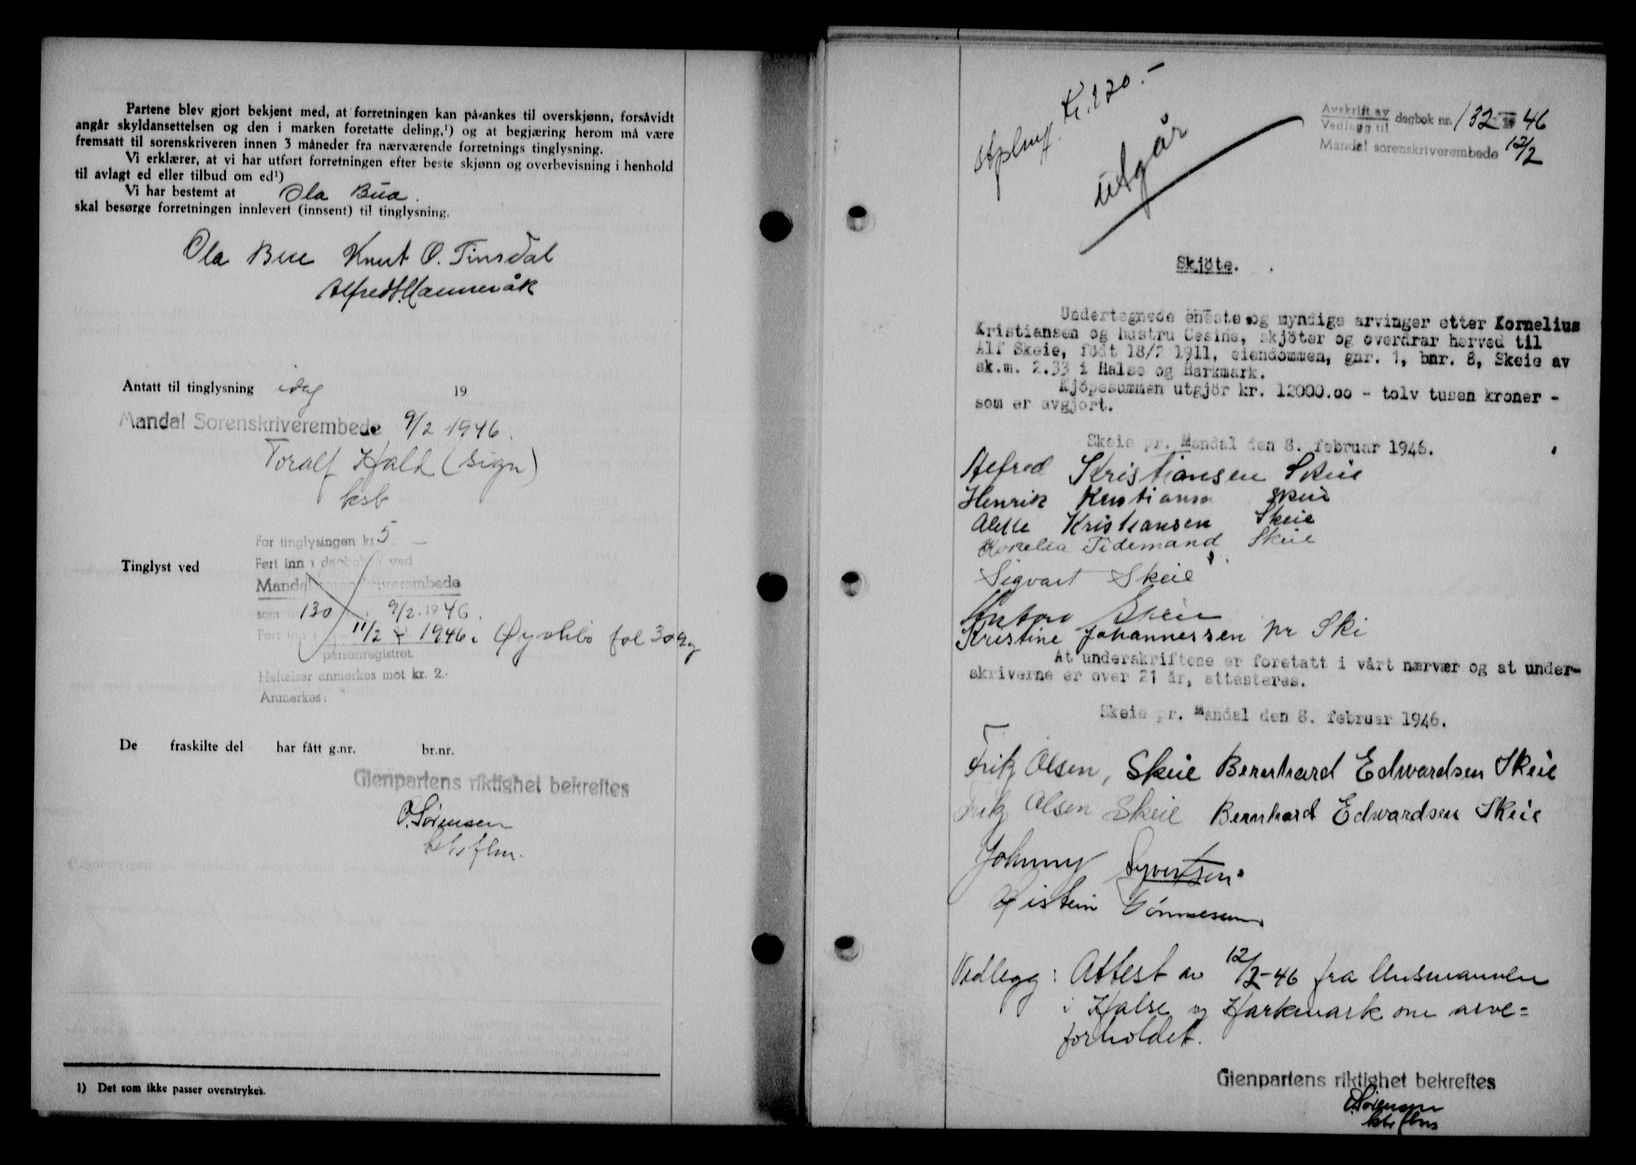 Partene blev gjort bekjent med, at forretningen kan på-ankes til overskjønn, forsåvidt
angår skyldansettelsen og den i marken foretatte deling,¹) og at begjæring herom må være
fremsatt til sorenskriveren innen 3 måneder fra nærværende forretnings tinglysning.
Vi erklærer, at vi har utført forretningen efter beste skjønn og overbevisning i henhold
til avlagt ed eller tilbud om ed¹)
Vi har bestemt at Ola Bue.
skal besørge forretningen innlevert (innsent) til tinglysning.
Ola Bue Knut O. Tinsdal
Alfred
Antatt til tinglysning idag 19
Mandal Sorenskriverembede 9/2 1946.
Toralf Hald (sign)
ksb
For tinglysingen kr 5 —
Tinglyst ved Ført inn i dagboken ved
Mandal sorenskriverembede
som nr 130 9/2 1946.
Ført inn i 11/2 1946 i Øyslebø fol 309
personregistret.
Heftelser anmerkes mot kr. 2.-
Anmerkes:
De fraskilte del har fått g.nr. br.nr.
Gjenpartens riktighet bekreftes
O. Sørensen
1) Det som ikke passer overstrykes.
Kr. 120.-
utgår
Avskrift av
Vedlegg til dagbok nr. 132 - 1946
Mandal sorenskriverembede 12/2
Skjöte.
Undertegnede eneste og myndige arvinger etter Kornelius
Kristiansen og hustru Cesine, skjöter og overdrar herved til
Alf Skeie, födt 18/2 1911, eiendommen, gnr. 1, bnr. 8, Skeie av
sk.m. 2.33 i Halse og Harkmark.
Kjöpesummen utgjör kr. 12000.oo - tolv tusen kroner -
som er avgjort.
Skeie pr. Mandal den 8. februar 1946.
Alfred Kristiansen Skeie
Henrik Kristiansen Skeie
Kristiansen Skeie
Tidemand Skeie
Sigvart Skeie
Skeie
Kristine Johannessen pr Ski
At underskriftene er foretatt i vårt nærvær og at under-
skriverne er over 21 år, attesteres.
Skeie pr. Mandal den 8. februar 1946.
Fritz Olsen, Skeie Bernhard Edwardsen Skeie
Fritz Olsen Skeie Bernhard Edwardsen Skeie
Johnny Syvertsen
Øistein Tönnesen
Vedlegg: Attest av 12/2-46 fra lensmannen
i Halse og Harkmark om arve=
forholdet.
Gjenpartens riktighet bekreftes
O. Sørensen